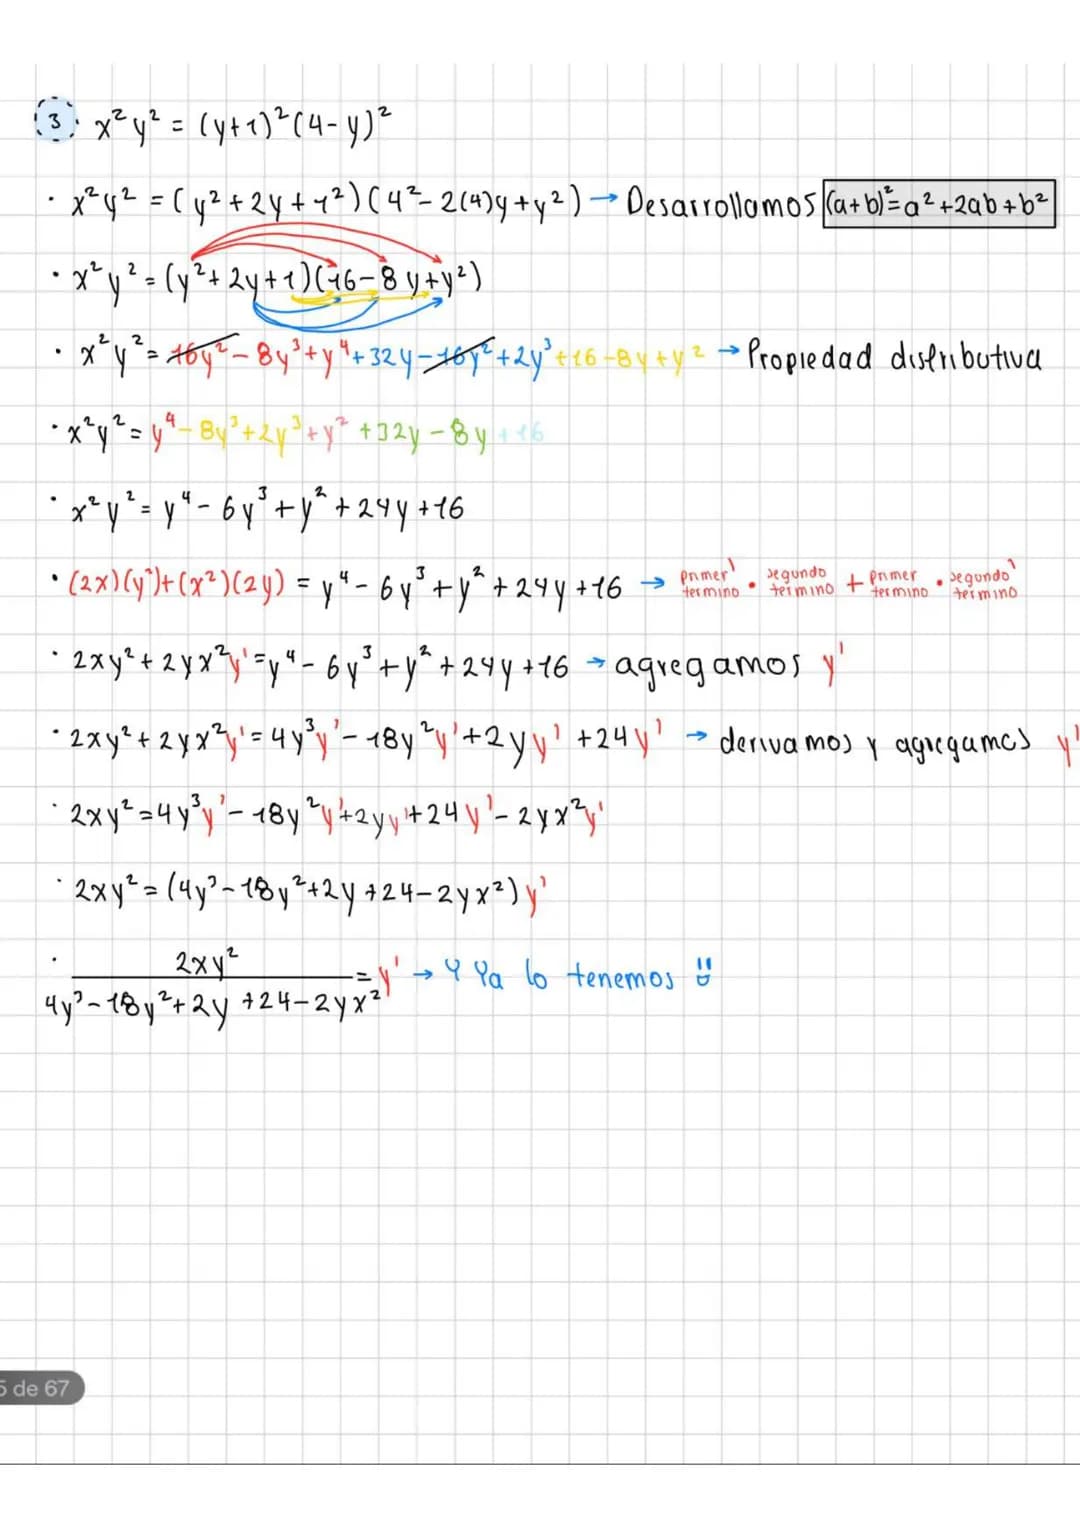 3 x²y² = (y+1)²(4-y)²
· x²y² = (y²+2y+1²)(4²-2(4)y+y²) → Desarrollamos (a+b)²=a²+2ab+b²
· x²y² = (y²+2y+1)(16-8y+y²)
· x²y² = 16y²-8y³+y⁴+32y-16y²+2y³+16-8y+y² → Propiedad distributiva
· x²y² = y⁴-8y³+2y³+y²+32y-8y+16
· x²y² = y⁴-6y³+y²+24y+16
· (2x)(y²)+(x²)(2y) = y⁴-6y³+y²+24y+16 → primer' termino · segundo termino + primer termino · segundo' termino
· 2xy²+2yx²y' = y⁴-6y³+y²+24y+16 → agregamos y'
· 2xy²+2yx²y' = 4y³y'-18y²y'+2yy'+24y' → derivamos y agregamos y'
· 2xy² = 4y³y'-18y²y'+2yy'+24y'-2yx²y'
· 2xy² = (4y³-18y²+2y+24-2yx²)y'
· 2xy²
4y³-18y²+2y+24-2yx² = y' → Y Ya lo tenemos
5 de 67